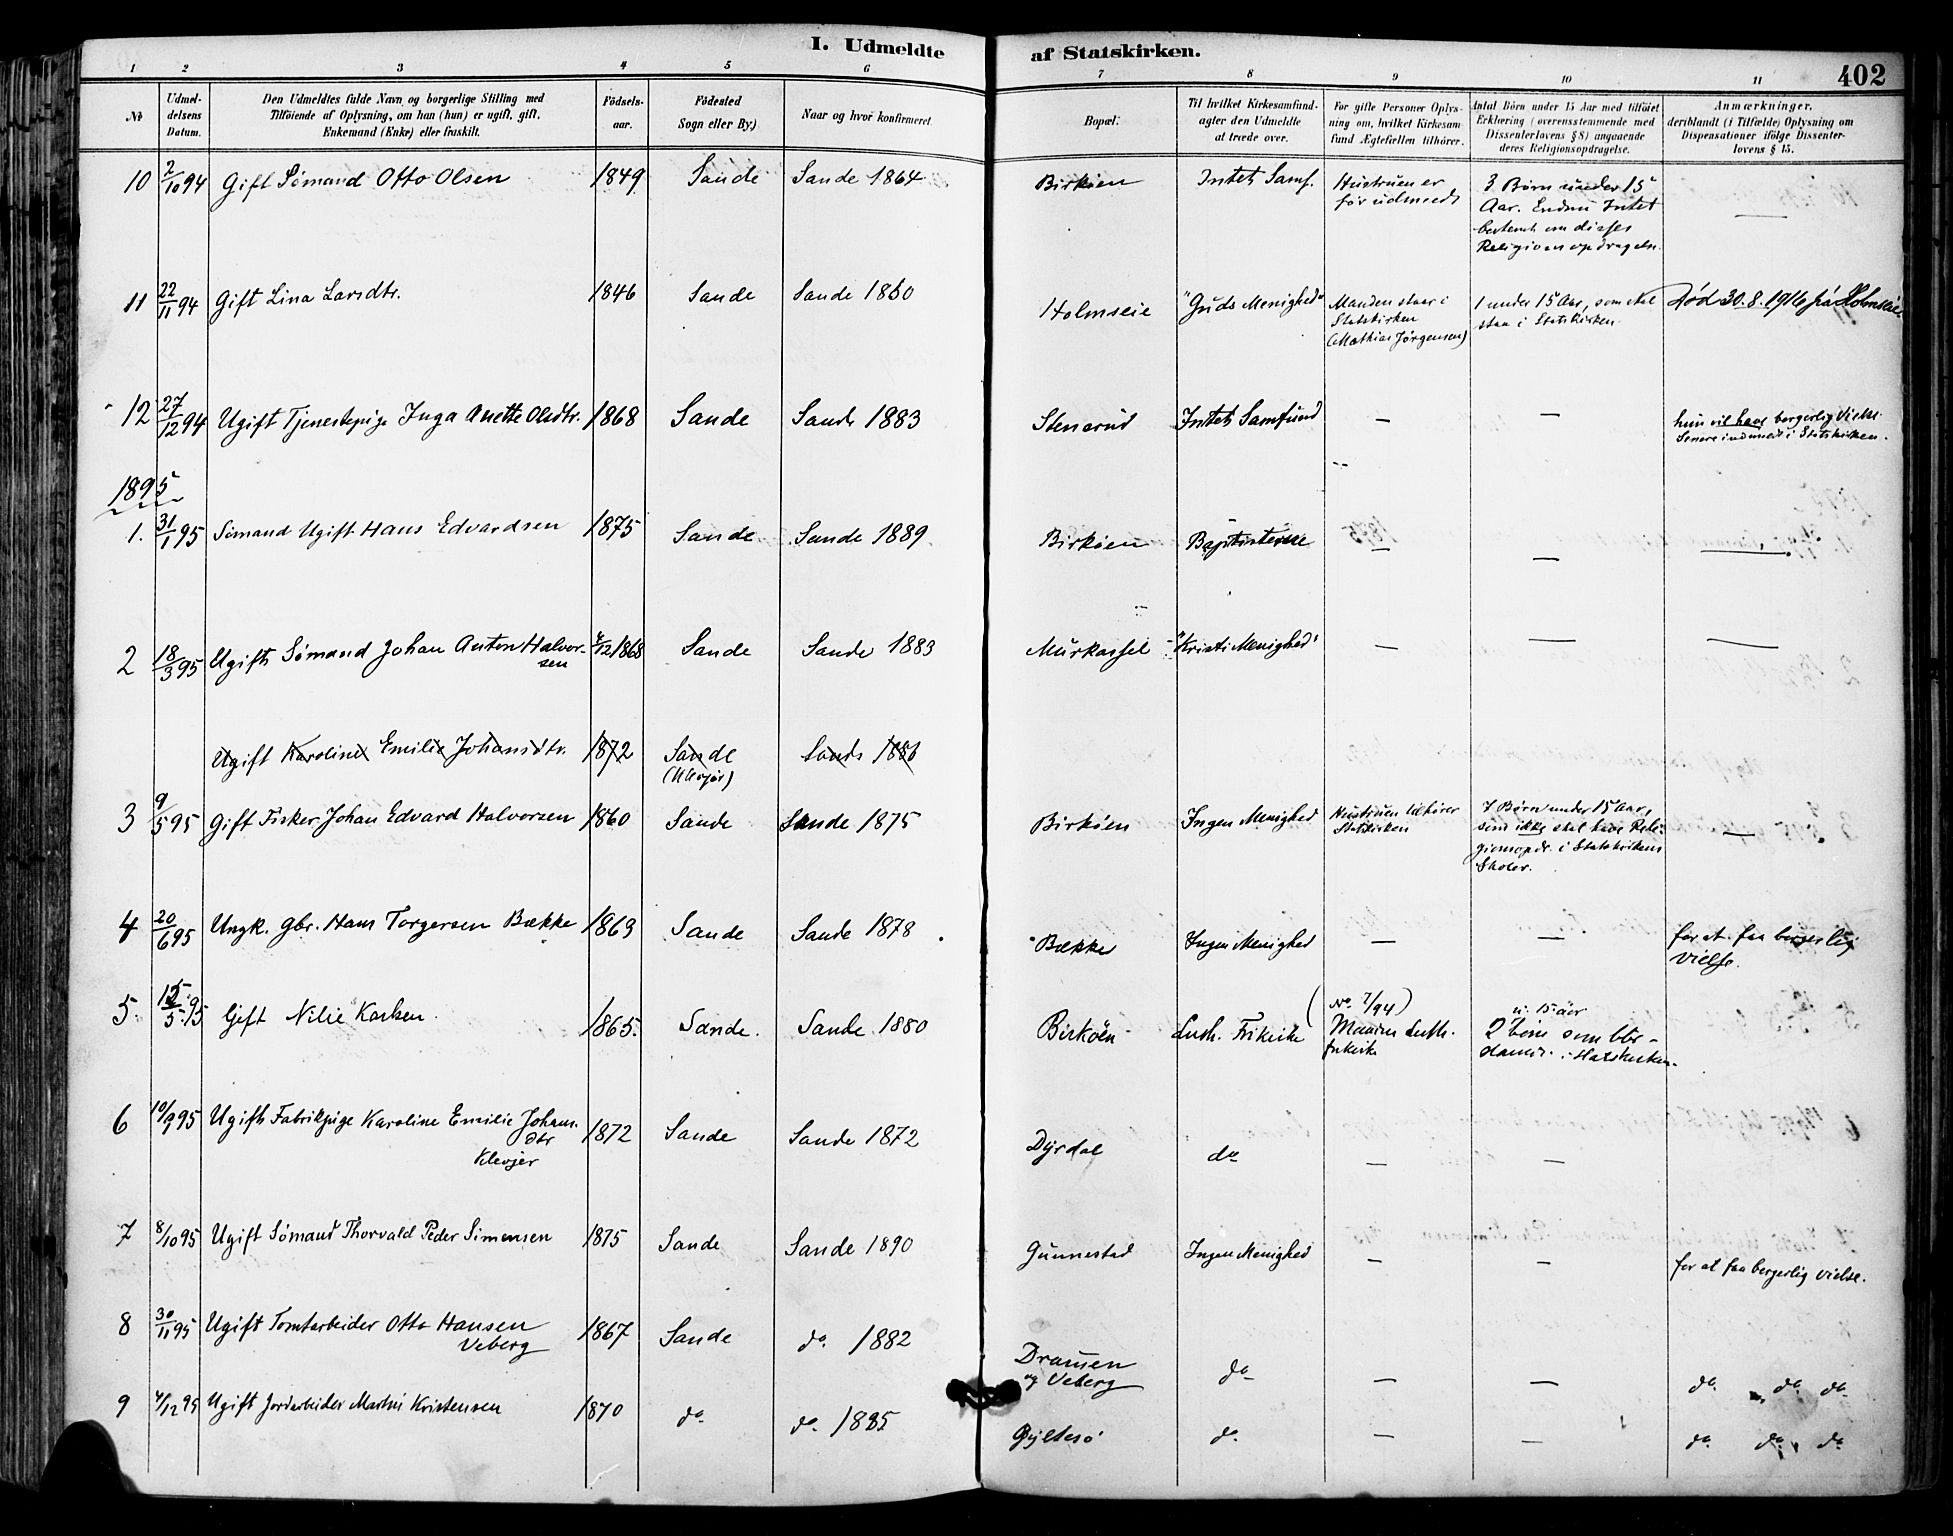 I. Udmeldte af Statskirken.
402
1 2 3 4 5 6 7 8 9 10 11
No
Udmel-
delsens
Datum.
Den Udmeldtes fulde Navn og borgerlige Stilling med
Tilföiende af Oplysning, om han (hun) er ugift, gift,
Enkemand (Enke) eller fraskilt.
Födsels-
aar.
Födested
Sogn eller By.)
Naar og hvor konfirmeret.
Bopæl.
Til hvilket Kirkesamfund-
agter den Udmeldte
at træde over.
For gifte Personer Oplys-
ning om, hvilket Kirkesam-
fund Ægtefællen tilhörer.
Antal Börn under 15 Aar med tilföiet
Erklæring (overensstemmende med
Dissenterlovens § 8) angaaende
deres Religionsopdragelse.
Anmærkninger,
deriblandt (i Tilfælde) Oplysning om
Dispensationer ifölge Dissenter-
lovens § 15.
10 2/10 94 Gift Sømand Otto Olsen 1849 Sande Sande 1864 Birköen Intet Samf. Hustruen er
før udmeldt
3 Børn under 15
Aar. Endnu Intet
bestemt om disses
Religionsopdragelse.
—
11 22/11 94 Gift Lina Larsdtr. 1846 Sande Sande 1860 Holmseie "Guds Menighed" Manden staar i
Statskirken
(Mathias Jørgensen)
1 under 15 Aar, som skal
staa i Statskirken.
Død 30.8.1916 frå Holmseie
12 27/12 94 Ugift Tjenestepige Inga Anette Olsdtr. 1868 Sande Sande 1883 Stenerud Intet Samfund — —
hun vil have borgerlig Vielse.
Senere indmeldt i Statskirken.
1895
1. 31/1 95 Sömand Ugift Hans Edvardsen 1875 Sande Sande 1889 Birköen Baptisterne — — —
2 18/3 95 Ugift Sømand Johan Anton Halvor-
sen
/12 1868 Sande Sande 1883 Murkassel "Kristi Menighed" — — —
Ugift Karoline Emilie Johansdtr. 1872 Sande Sande 1886
(Klevjer)
3 9/5 95 Gift Fisker Johan Edvard Halvorsen 1860 Sande Sande 1875 Birköen Ingen Menighed Hustruen tilhører
Statskirken
Børn under 15 Aar,
som ikke skal have Reli-
gionsopdr. i Statskirkens
Skoler.
—
4 20/6 95 Ungk. Gbr. Hans Torgersen Bække 1863 Sande Sande 1878 Bække Ingen Menighed — —
for at faa borgerlig
Vielse.
5. /5 95 Gift Nilie Karlsen. 1865. Sande. Sande 1880 Birköen Luth. Frikirke
(No 7/94)
Manden Luth.
frikirke
u. 15 aar
2 børn som
i statskirken.
6 10/9 95 Ugift Fabrikpige Karoline Emilie Johans.
dtr
Klevjer
1872 Sande Sande 1872 Dyrdal do — —
7 8/10 95 Ugift Sømand Thorvald Peder Simensen 1875 Sande Sande 1890 Gunnestad Ingen Menighed — —
for at faa borgerlig vielse.
8 30/11 95 Ugift Tomtarbeider Otto Hansen
Veberg
1867 Sande do. 1882 Dramen
og Veberg
do — — do. do. do.
9 4/12 95 Ugift Jordarbeider Martin Kristensen 1870 do. do. 1885 Gyltesö do. — — do. do. do